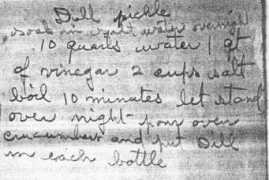 Dill pickle
soak in salt water overnight
10 quarts water 1 qt
of vinegar 2 cups salt
boil 10 minutes let stand
over night - pour over
cucumbers and put Dill
in each bottle